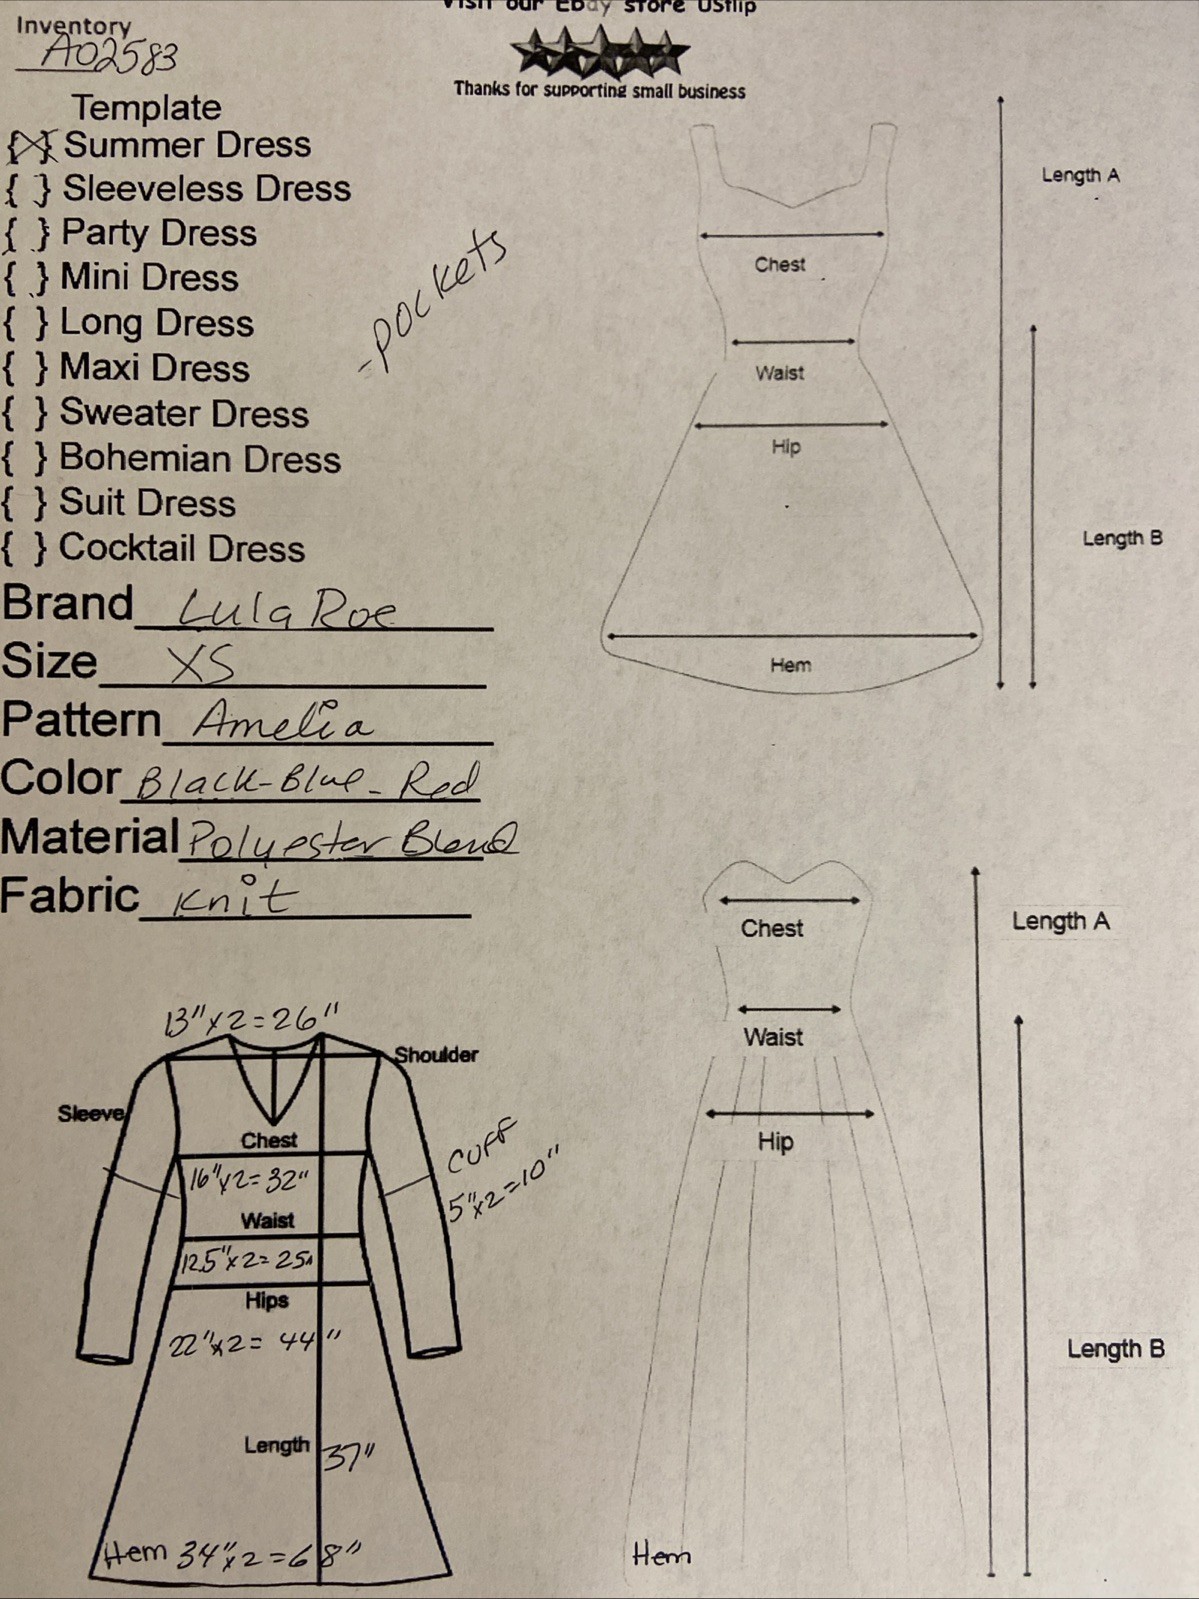 Visit our Ebay store USflip
Thanks for supporting small business
Inventory
A02583
Template
{X} Summer Dress
{ } Sleeveless Dress
{ } Party Dress
{ } Mini Dress
{ } Long Dress
{ } Maxi Dress
{ } Sweater Dress
{ } Bohemian Dress
{ } Suit Dress
{ } Cocktail Dress
-pockets
Brand LulaRoe
Size XS
Pattern Amelia
Color Black-Blue-Red
Material Polyester Blend
Fabric Knit
Length A
Chest
Waist
Hip
Length B
Hem
13"x2=26"
Shoulder
Sleeve
Chest
16"x2=32"
CUFF
5"x2=10"
Waist
12.5"x2=25"
Hips
22"x2=44"
Length 37"
Hem 34"x2=68"
Chest
Length A
Waist
Hip
Length B
Hem